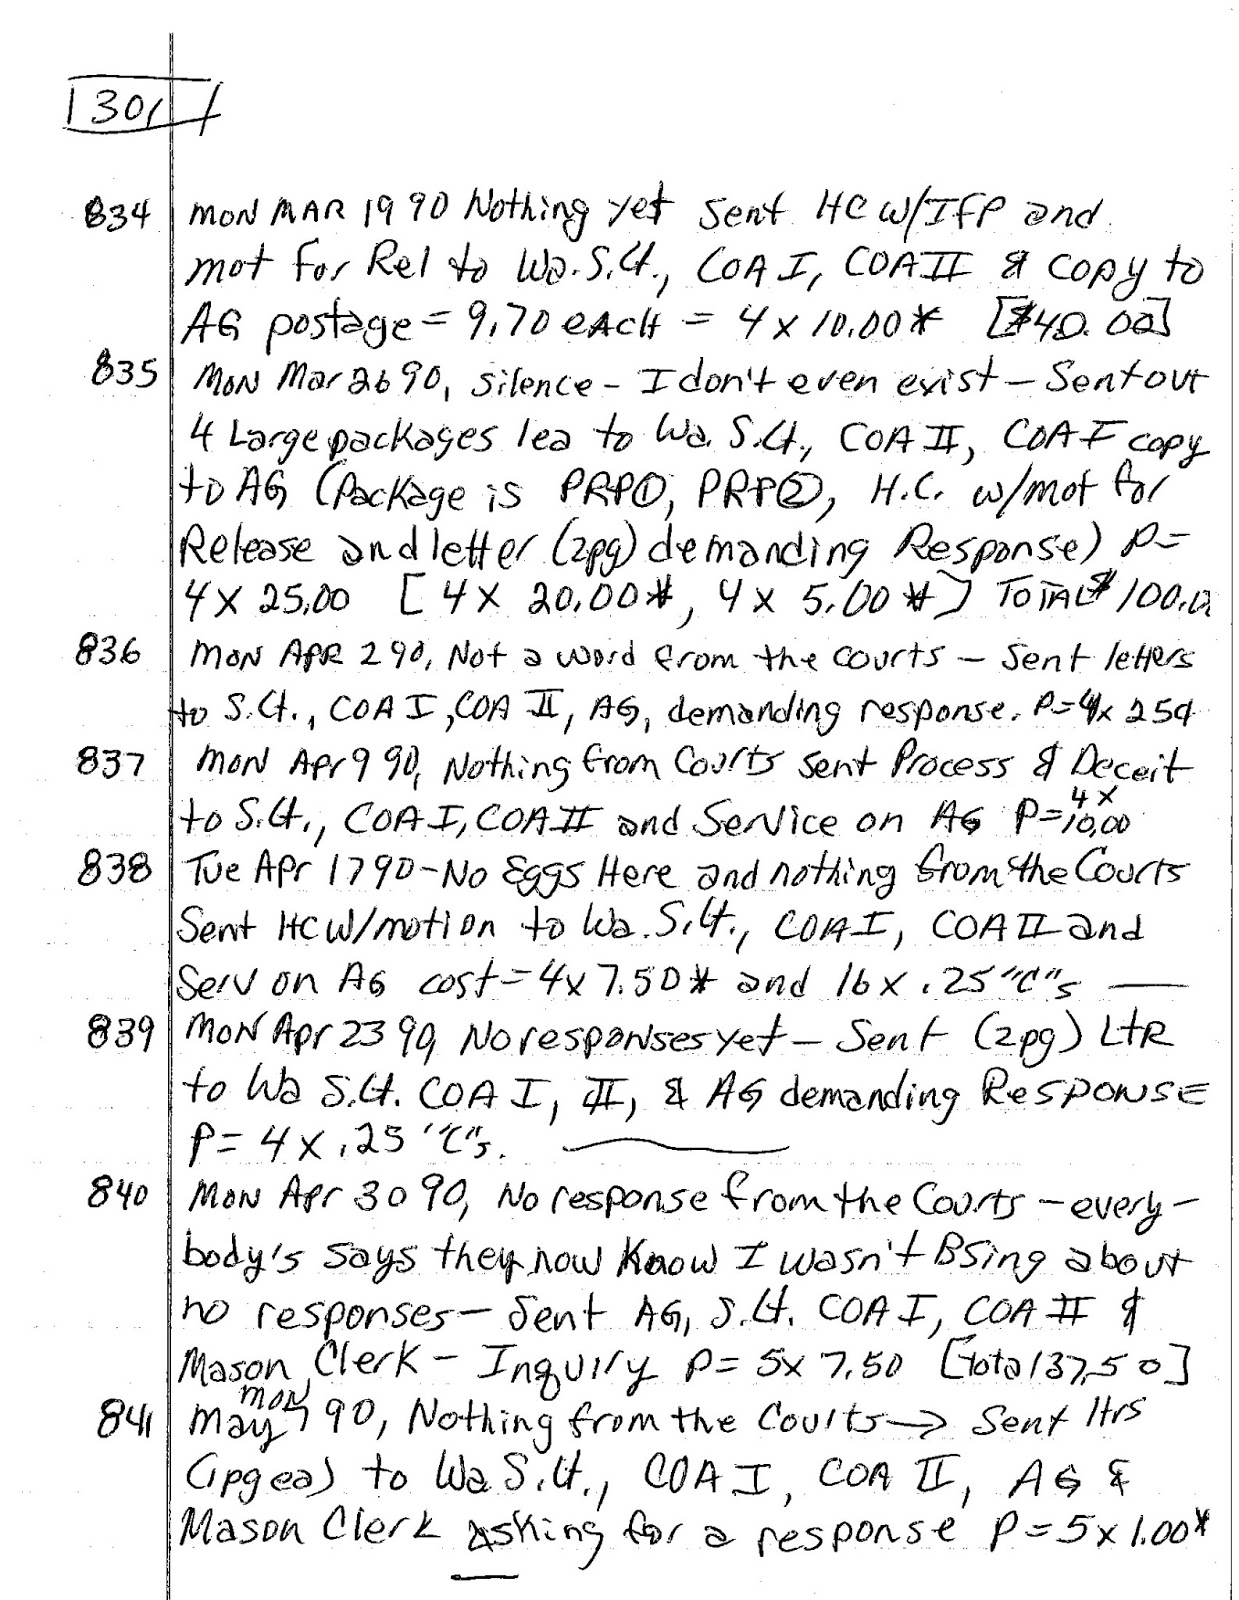 1301
834 MON MAR 19 90 Nothing yet Sent HC W/IFP and
mot for Rel to Wa. S.Ct., COA I, COA II & copy to
AG postage = 9.70 eACH = 4 x 10.00* [$40.00]
835 MON Mar 26 90, silence - I don't even exist - Sent out
4 Large packages 1ea to Wa. S.Ct., COA II, COA I copy
to AG (Package is PRP①, PRP②, H.C. w/mot for
Release and letter (2pg) demanding Response) P=
4 X 25.00 [4 X 20.00*, 4 X 5.00*] TOTAL $100.00
836 MON APR 2 90, Not a word from the courts - Sent letters
to S.Ct., COA I, COA II, AG, demanding response. P=4x 25¢
837 MON Apr 9 90, Nothing from Courts sent Process & Deceit
to S.Ct., COA I, COA II and Service on AG P= 4 X 10.00
838 Tue Apr 17 90 - No Eggs Here and nothing from the Courts
Sent HC W/motion to Wa. S.Ct., COA I, COA II and
Serv on AG cost = 4x 7.50* and 16 x .25 "C"s —
839 MON Apr 23 90, No responses yet - Sent (2pg) LTR
to Wa S.Ct. COA I, II, & AG demanding RESPONSE
P= 4 X .25 "C"s.
840 MON Apr 30 90, No response from the Courts - every-
body's says they now know I wasn't BSing about
no responses - Sent AG, S.Ct. COA I, COA II &
Mason Clerk - Inquiry P= 5x 7.50 [total 37.50]
841 MON May 7 90, Nothing from the Courts → Sent ltrs
(1pg ea) to Wa S.Ct., COA I, COA II, AG &
Mason Clerk Asking for a response P = 5 x 1.00*